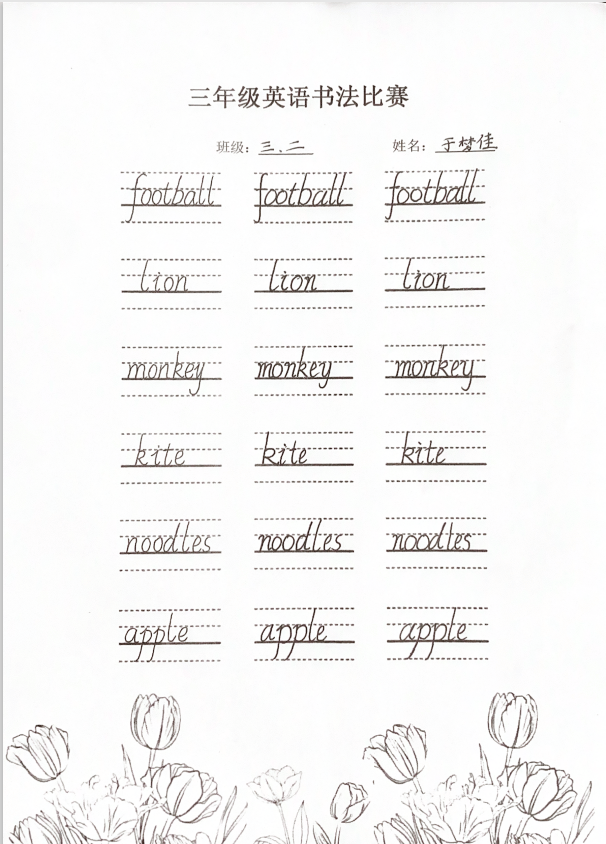 三年级英语书法比赛
班级：三.二 姓名：于梦佳
football football football
lion lion lion
monkey monkey monkey
kite kite kite
noodles noodles noodles
apple apple apple